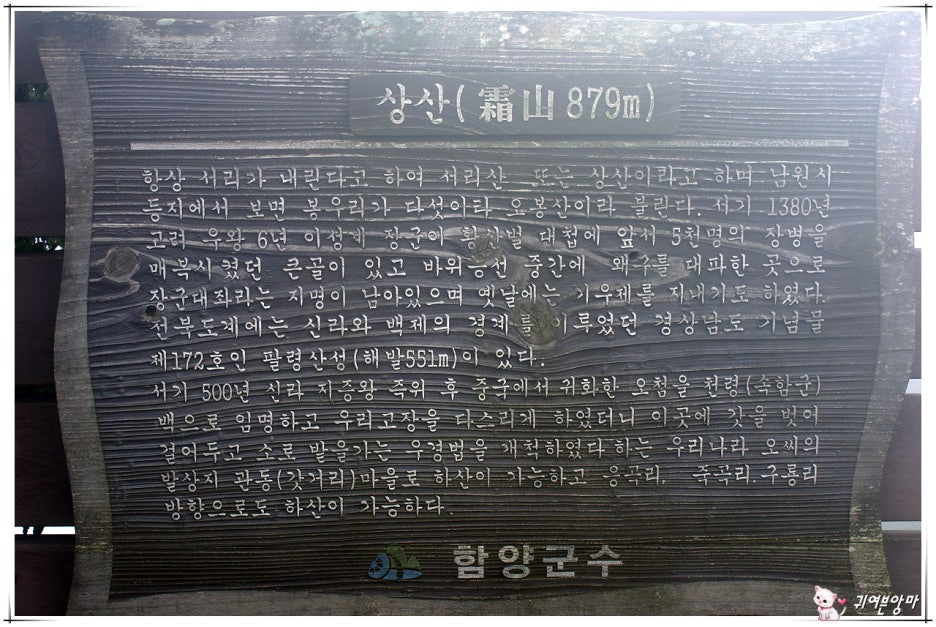 상산(霜山 879m)
항상 서리가 내린다고 하여 서리산 또는 상산이라고 하며 남원시
등지에서 보면 봉우리가 다섯이라 오봉산이라 불린다. 서기 1380년
고려 우왕 6년 이성계 장군이 황산벌 대첩에 앞서 5천명의 장병을
매복시켰던 큰골이 있고 바위능선 중간에 왜구를 대파한 곳으로
장군대좌라는 지명이 남아있으며 옛날에는 기우제를 지내기도 하였다.
전북도계에는 신라와 백제의 경계를 이루었던 경상남도 기념물
제172호인 팔령산성(해발551m)이 있다.
서기 500년 신라 지증왕 즉위 후 중국에서 귀화한 오첨을 천령(속함군)
백으로 임명하고 우리고장을 다스리게 하였더니 이곳에 갓을 벗어
걸어두고 소로 밭을가는 우경법을 개척하였다 하는 우리나라 오씨의
발상지 관동(갓거리)마을로 하산이 가능하고 웅곡리. 죽곡리.구룡리
방향으로도 하산이 가능하다.
함양군수
귀여븐앙마